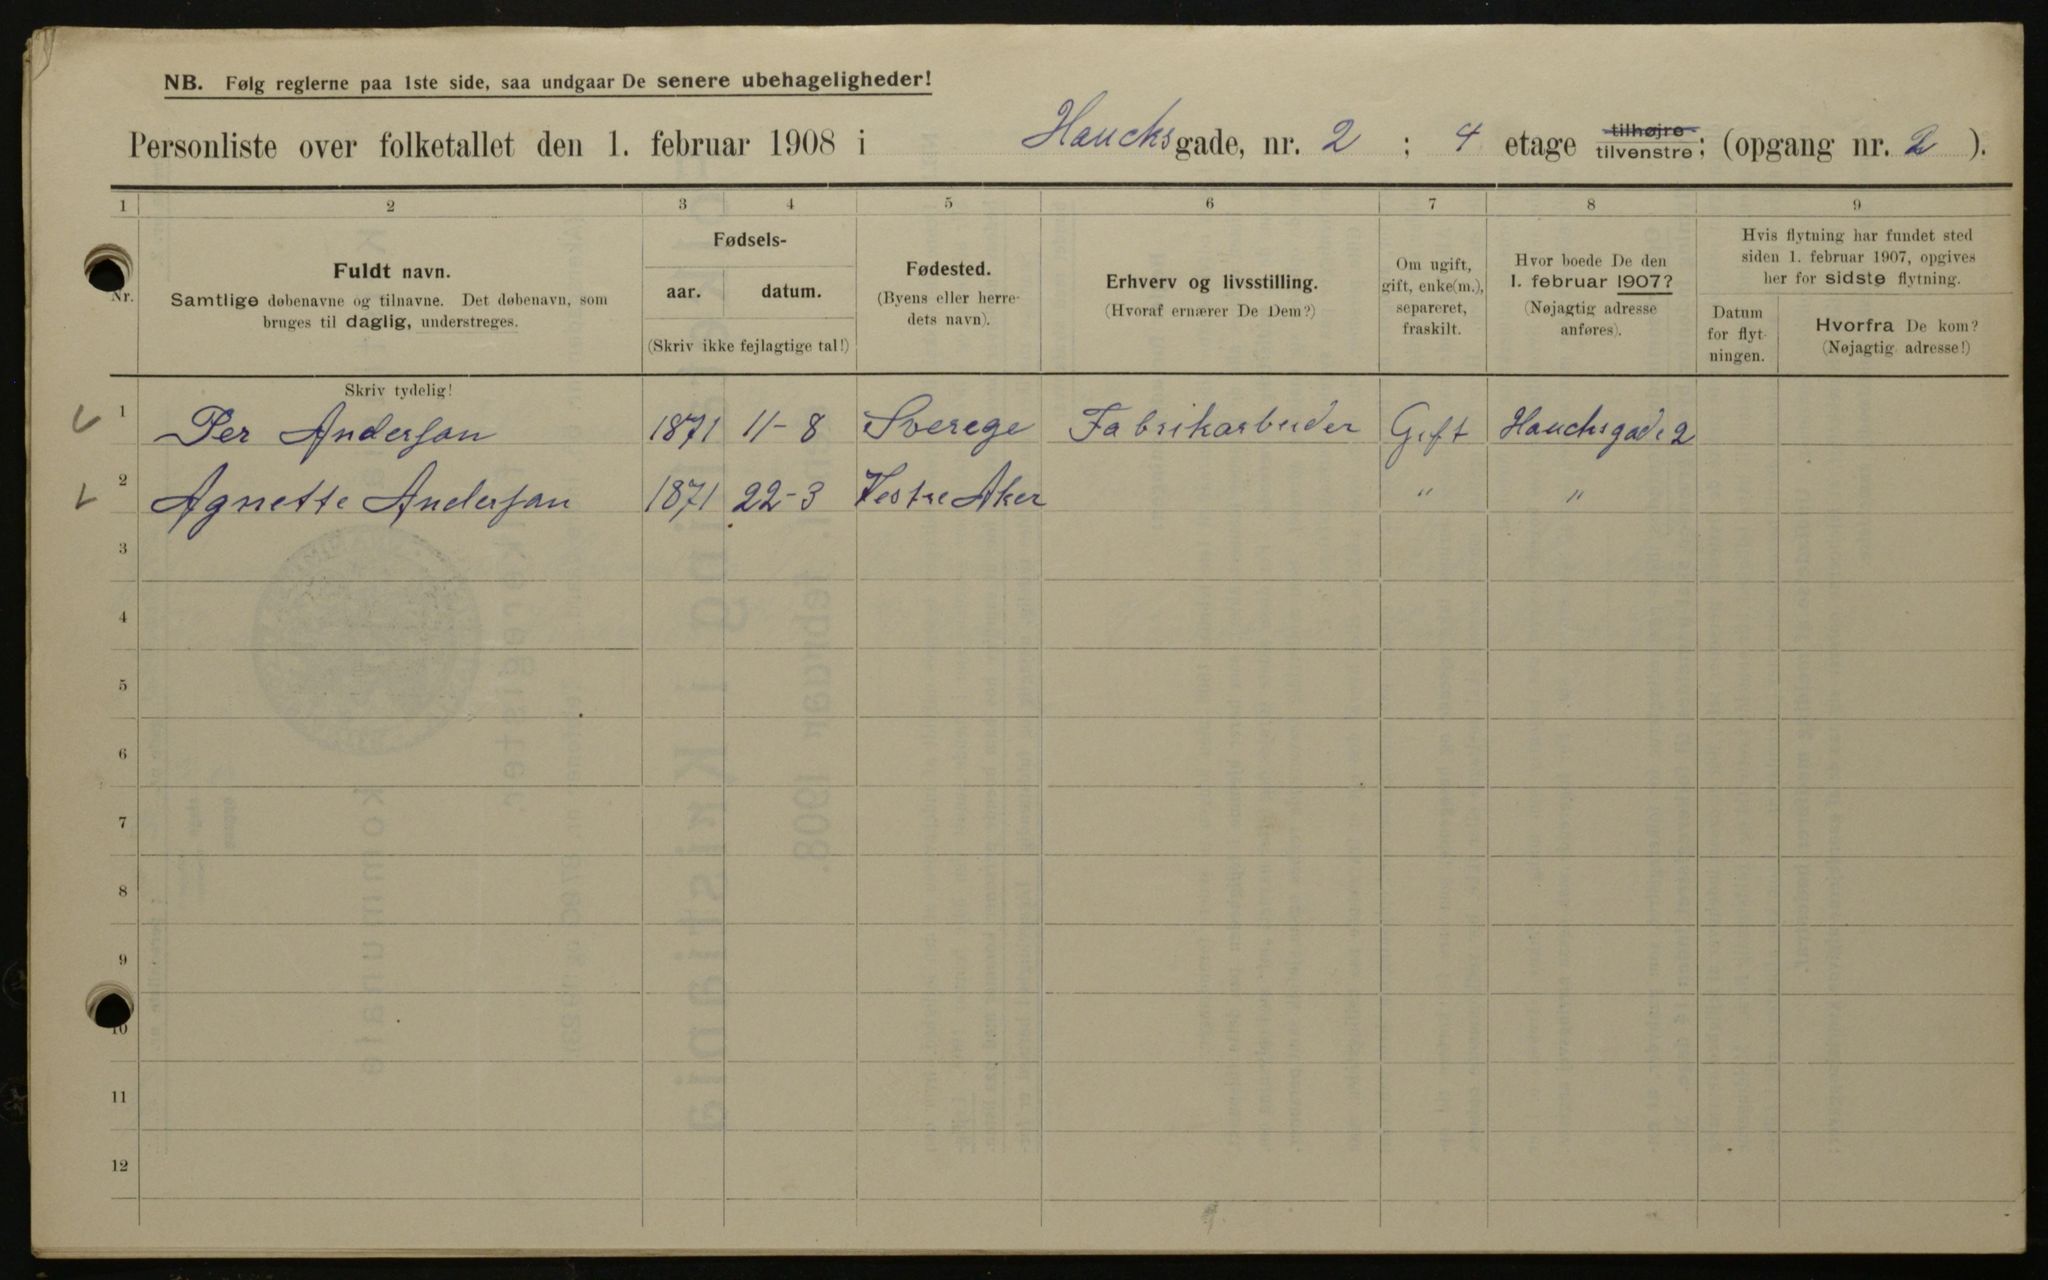 NB. Følg reglerne paa 1ste side, saa undgaar De senere ubehageligheder!
Personliste over folketallet den 1. februar 1908 i Haucksgade, nr. 2 ; 4 etage tilhøjre tilvenstre; (opgang nr. 2 ).
1 2 3 4 5 6 7 8 9
Nr.
Fuldt navn.
Samtlige døbenavne og tilnavne. Det døbenavn, som
bruges til daglig, understreges.
Fødsels-
aar. datum.
(Skriv ikke fejlagtige tal!)
Fødested.
(Byens eller herre-
dets navn).
Erhverv og livsstilling.
(Hvoraf ernærer De Dem?)
Om ugift,
gift, enke(m.),
separeret,
fraskilt.
Hvor boede De den
1. februar 1907?
(Nøjagtig adresse
anføres).
Hvis flytning har fundet sted
siden 1. februar 1907, opgives
her for sidste flytning.
Datum
for flyt-
ningen.
Hvorfra De kom?
(Nøjagtig adresse!)
Skriv tydelig!
1 Per Anderson 1871 11-8 Sverege Fabrikarbeider Gift Haucksgade 2
2 Agnette Anderson 1871 22-3 Vestre Aker " "
3
4
5
6
7
8
9
10
11
12